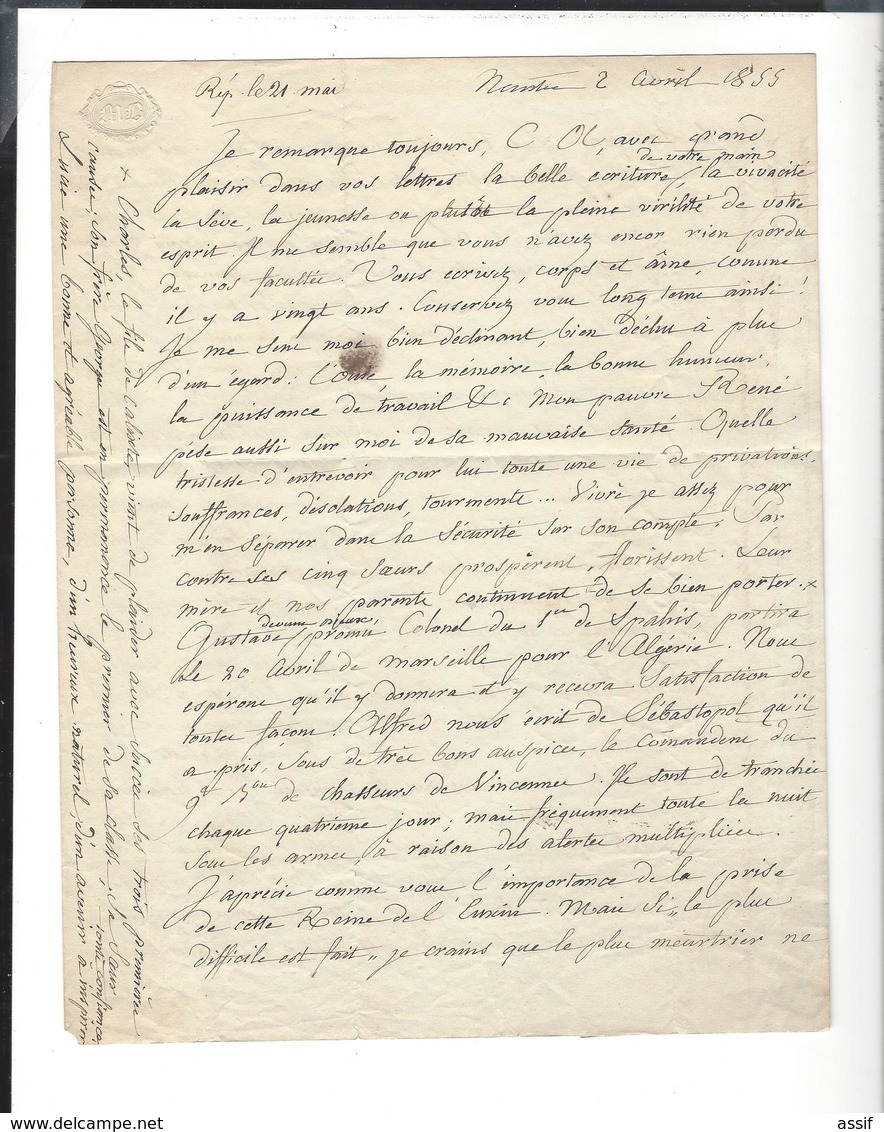 Rép. le 21 mai
Nantes 2 Avril 1855
Je remarque toujours, C Ol, avec grand
plaisir dans vos lettres la belle écriture de votre main, la vivacité
la sève, la jeunesse ou plutôt la pleine virilité de votre
esprit. Il me semble que vous n'avez encor rien perdu
de vos facultés. Vous écrivez, corps et âme, comme
il y a vingt ans. Conservez vous long tems ainsi!
Je me sens moi bien déclinant, bien déchu à plus
d'un égard: l'ouïe, la mémoire, la bonne humeur,
la puissance de travail &c. Mon pauvre René
pèse aussi sur moi de sa mauvaise santé. Quelle
tristesse d'entrevoir pour lui toute une vie de privations,
souffrances, désolations, tourments... Vivrè je assez pour
m'en séparer dans la sécurité sur son compte. Par
contre ses cinq sœurs prospèrent, florissent. Leur
mère et nos parents continuent de se bien porter. +
Gustave, devenu mieux, promu Colonel du 1er de Spahis, partira
le 20 Avril de Marseille pour l'Algérie. Nous
espérons qu'il y donnera et y recevra satisfaction de
toutes façons. Alfred nous écrit de Sébastopol qu'il
a pris, sous de très bons auspices, le comandem du
9e Bon de chasseurs de Vincennes. Ils sont de tranchée
chaque quatrieme jour: mais fréquemment toute la nuit
sous les armes, à raison des alertes multipliées.
J'aprécie comme vous l'importance de la prise
de cette Reine de l'Euxin. Mais si "le plus
difficile est fait" je crains que le plus meurtrier ne
+ Charles, le fils de Calixte, vient de plaider avec succès ses trois premières
causes; son frère George est en permanence le premier de sa classe; sa sœur
Lucie une bonne et agréable personne, d'un heureux naturel, d'un avenir à inspirer
toute confiance.
assif